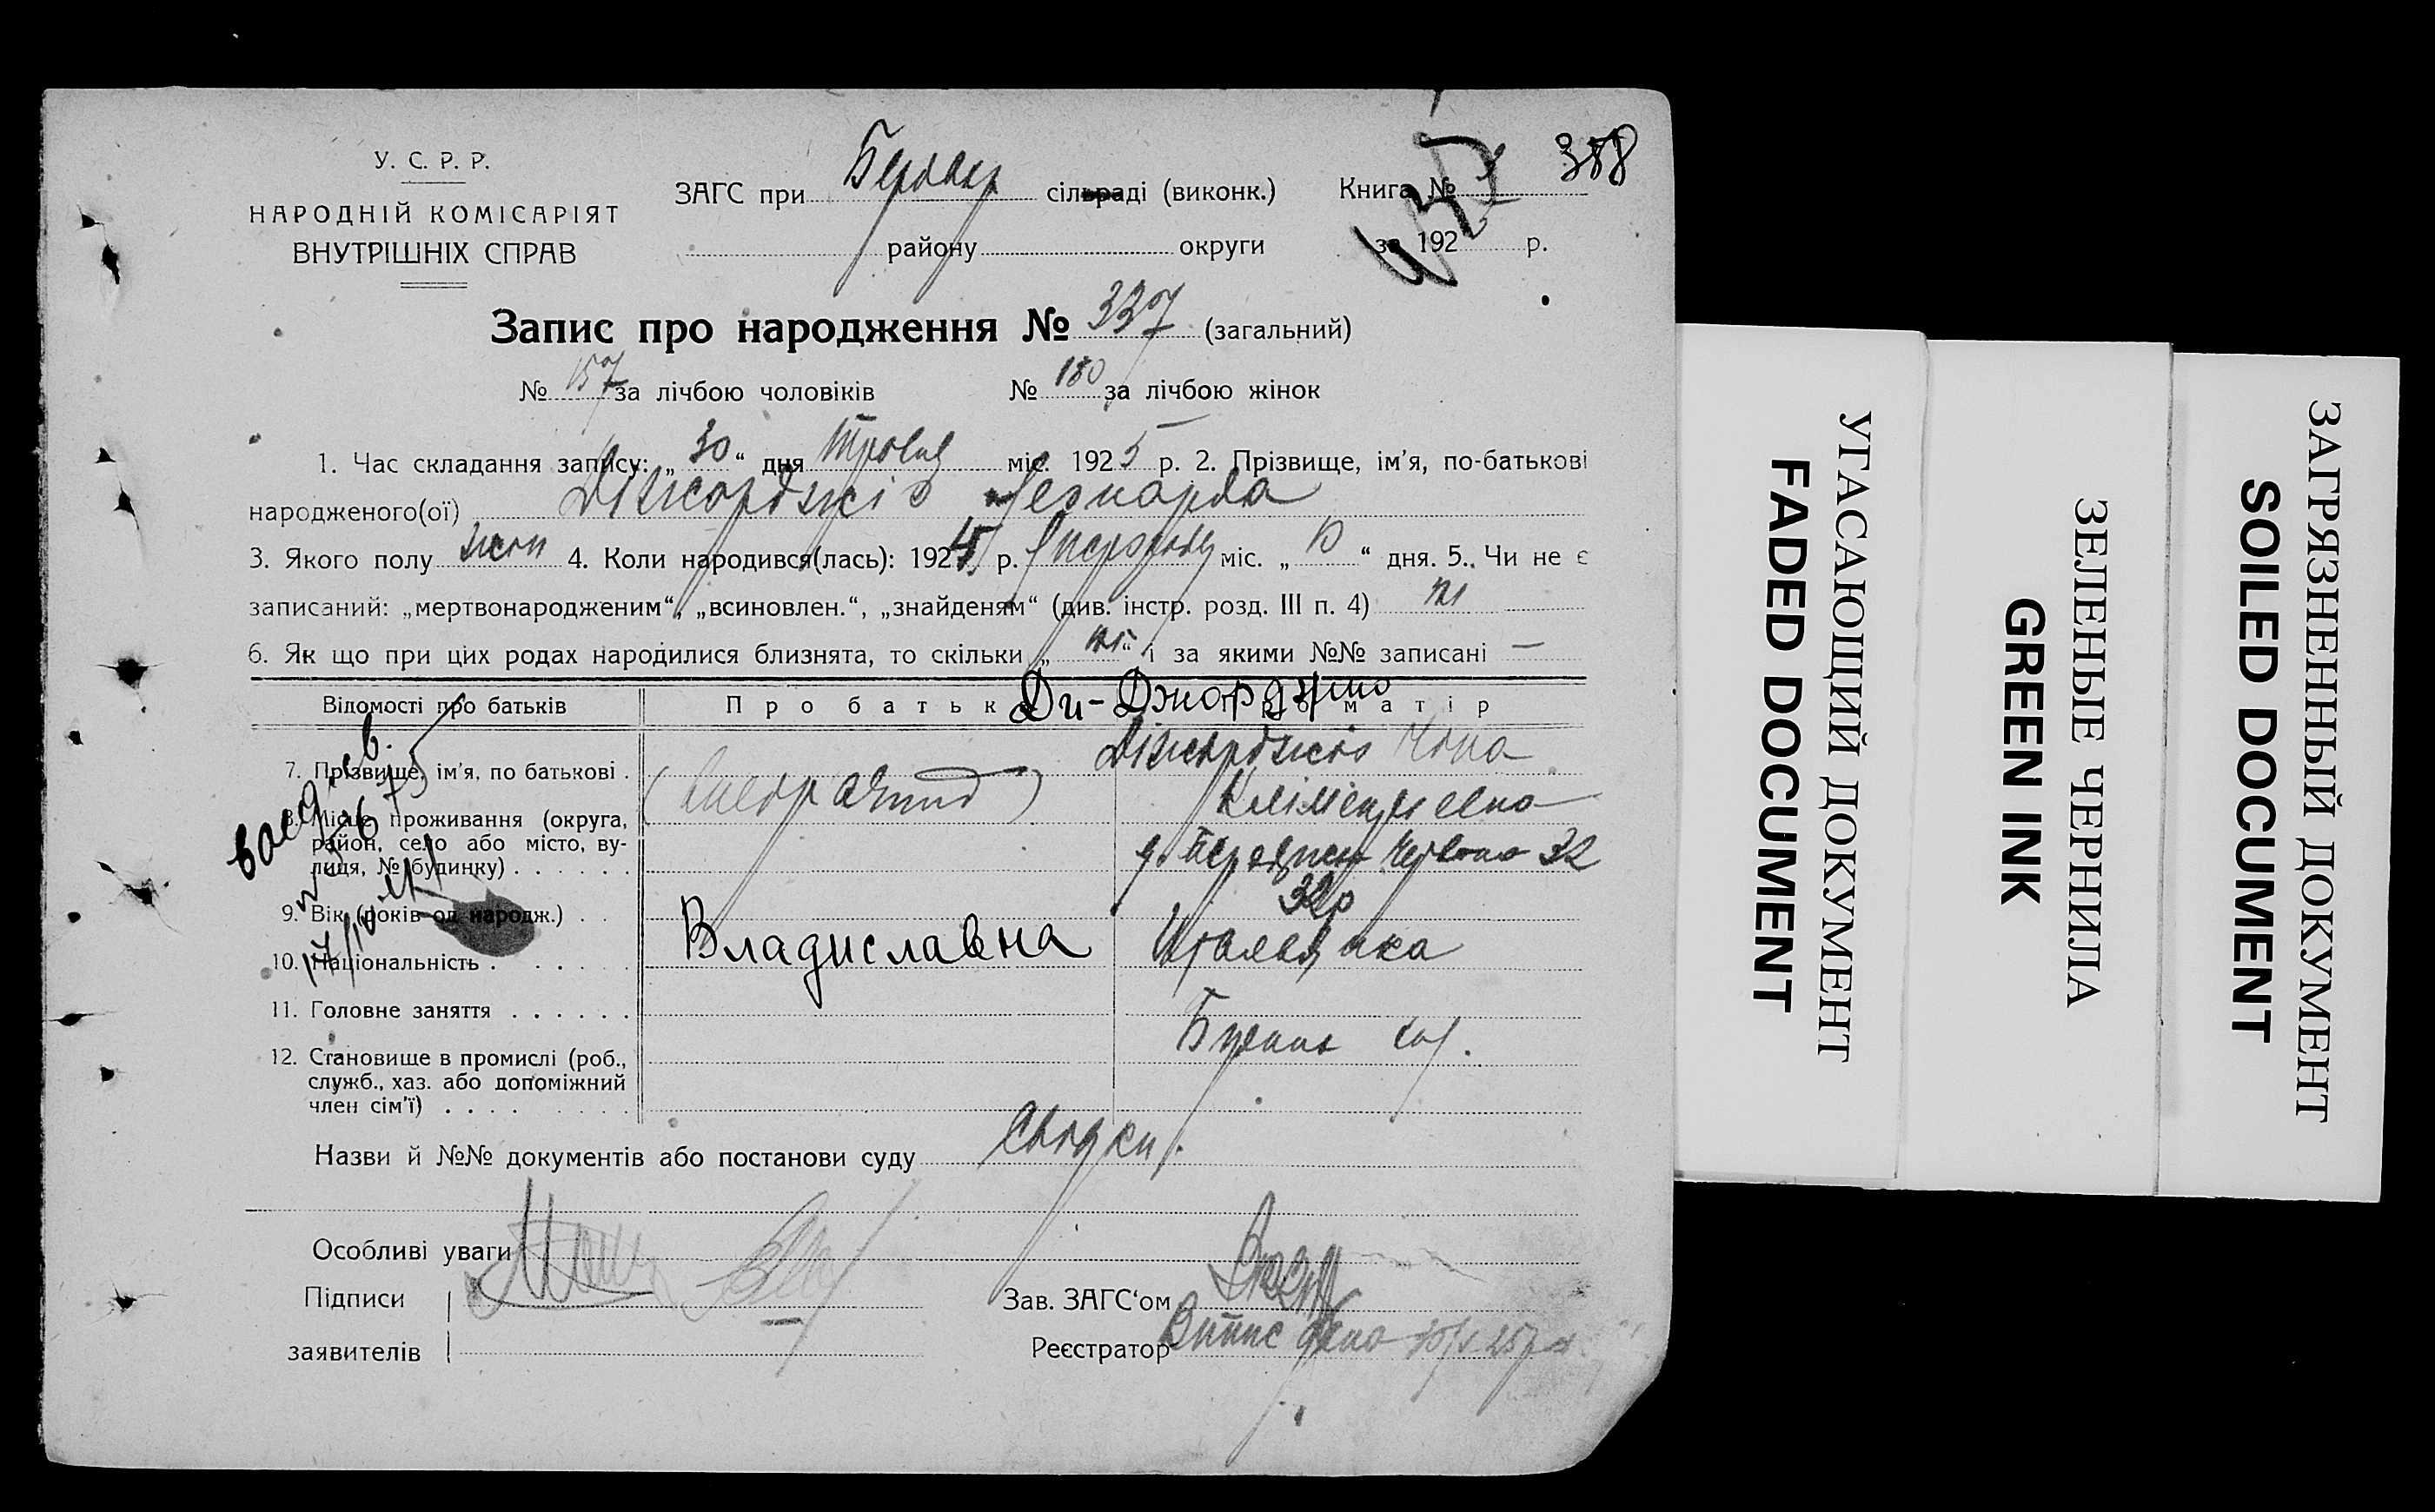 У. С. Р. Р.
НАРОДНІЙ КОМІСАРІЯТ
ВНУТРІШНІХ СПРАВ
ЗАГС при сільраді (виконк.) Книга № 358
району округи за 192 р.
Запис про народження № 337 (загальний)
№ 157 за лічбою чоловіків № 180 за лічбою жінок
1. Час складання запису: „30“ дня Травня міс. 1925 р. 2. Прізвище, ім’я, по-батькові
народженого(ої) Діжорджіо Леонарда
3. Якого полу жон 4. Коли народився(лась): 192 р. міс. „ “ дня. 5. Чи не є
записаний: „мертвонародженим“, „всиновлен.“, „знайденям“ (див. інстр. розд. III п. 4) ні
6. Як що при цих родах народилися близнята, то скільки „ні“ і за якими №№ записані —
Ди-Джорджио
Відомості про батьків Про батька Про матір
7. Прізвище, ім’я, по батькові . Діжорджіо
8. Місце проживання (округа,
район, село або місто, ву-
лиця, № будинку) . . . . . . 32
9. Вік (років од народж.) . . 32р
10. Національність . . . . . . Владиславна Итальянка
11. Головне заняття . . . . . .
12. Становище в промислі (роб.,
служб., хаз. або допоміжний
член сім’ї) . . . . . . . .
Назви й №№ документів або постанови суду
Особливі уваги
Підписи
заявителів
Зав. ЗАГС‘ом
Реєстратор Випис дано
УГАСАЮЩИЙ ДОКУМЕНТ
FADED DOCUMENT
ЗЕЛЕНЫЕ ЧЕРНИЛА
GREEN INK
ЗАГРЯЗНЕННЫЙ ДОКУМЕНТ
SOILED DOCUMENT